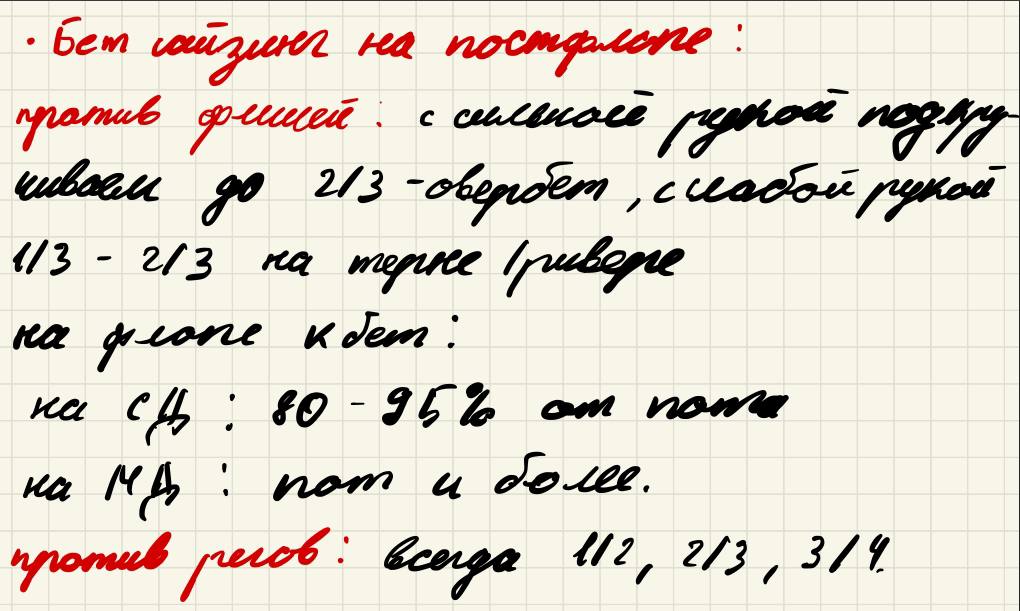 · Бет сайзинг на постфлопе :
против фишей : с сильной рукой подкру-
чиваем до 2/3 - овербет , с слабой рукой
1/3 - 2/3 на терне / ривере
на флопе к бет :
на СД : 80 - 95% от пота
на МД : пот и более.
против регов : всегда 1/2 , 2/3 , 3/4.